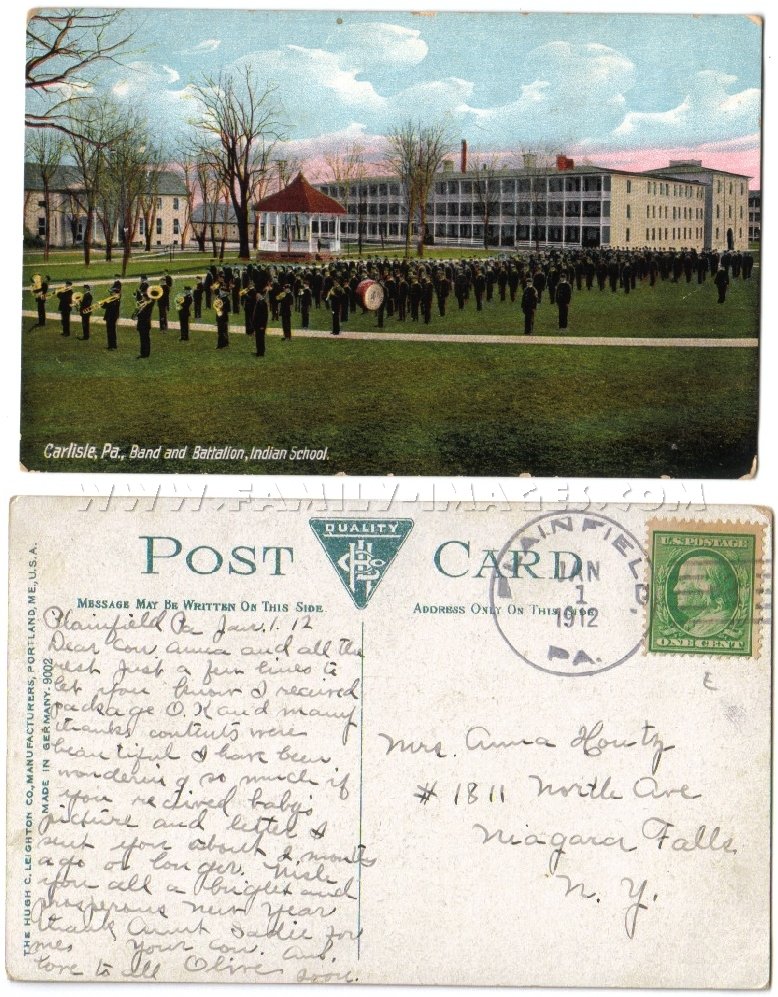 Carlisle, Pa., Band and Battalion, Indian School.
WWW.FAMILY-IMAGES.COM
POST CARD
QUALITY
MESSAGE MAY BE WRITTEN ON THIS SIDE
ADDRESS ONLY ON THIS SIDE
PLAINFIELD,
JAN
1
1912
PA.
U.S. POSTAGE
ONE CENT
THE HUGH C. LEIGHTON CO., MANUFACTURERS, PORTLAND, ME., U.S.A.
MADE IN GERMANY. 9002
Plainfield Pa Jan. 1. 12
Dear Cou Anna and all the
rest just a few lines to
let you know I received
package O.K and many
thanks contents were
beautiful I have been
wondering so much if
you received baby's
picture and letter I
sent you about 2 months
ago or longer. Wish
you all a bright and
prosperous New Year
thank Aunt Sadie for
me. Your cou.
love to all Olive
soon.
Mrs. Anna Houtz
# 1811 North Ave
Niagara Falls
N. Y.
E